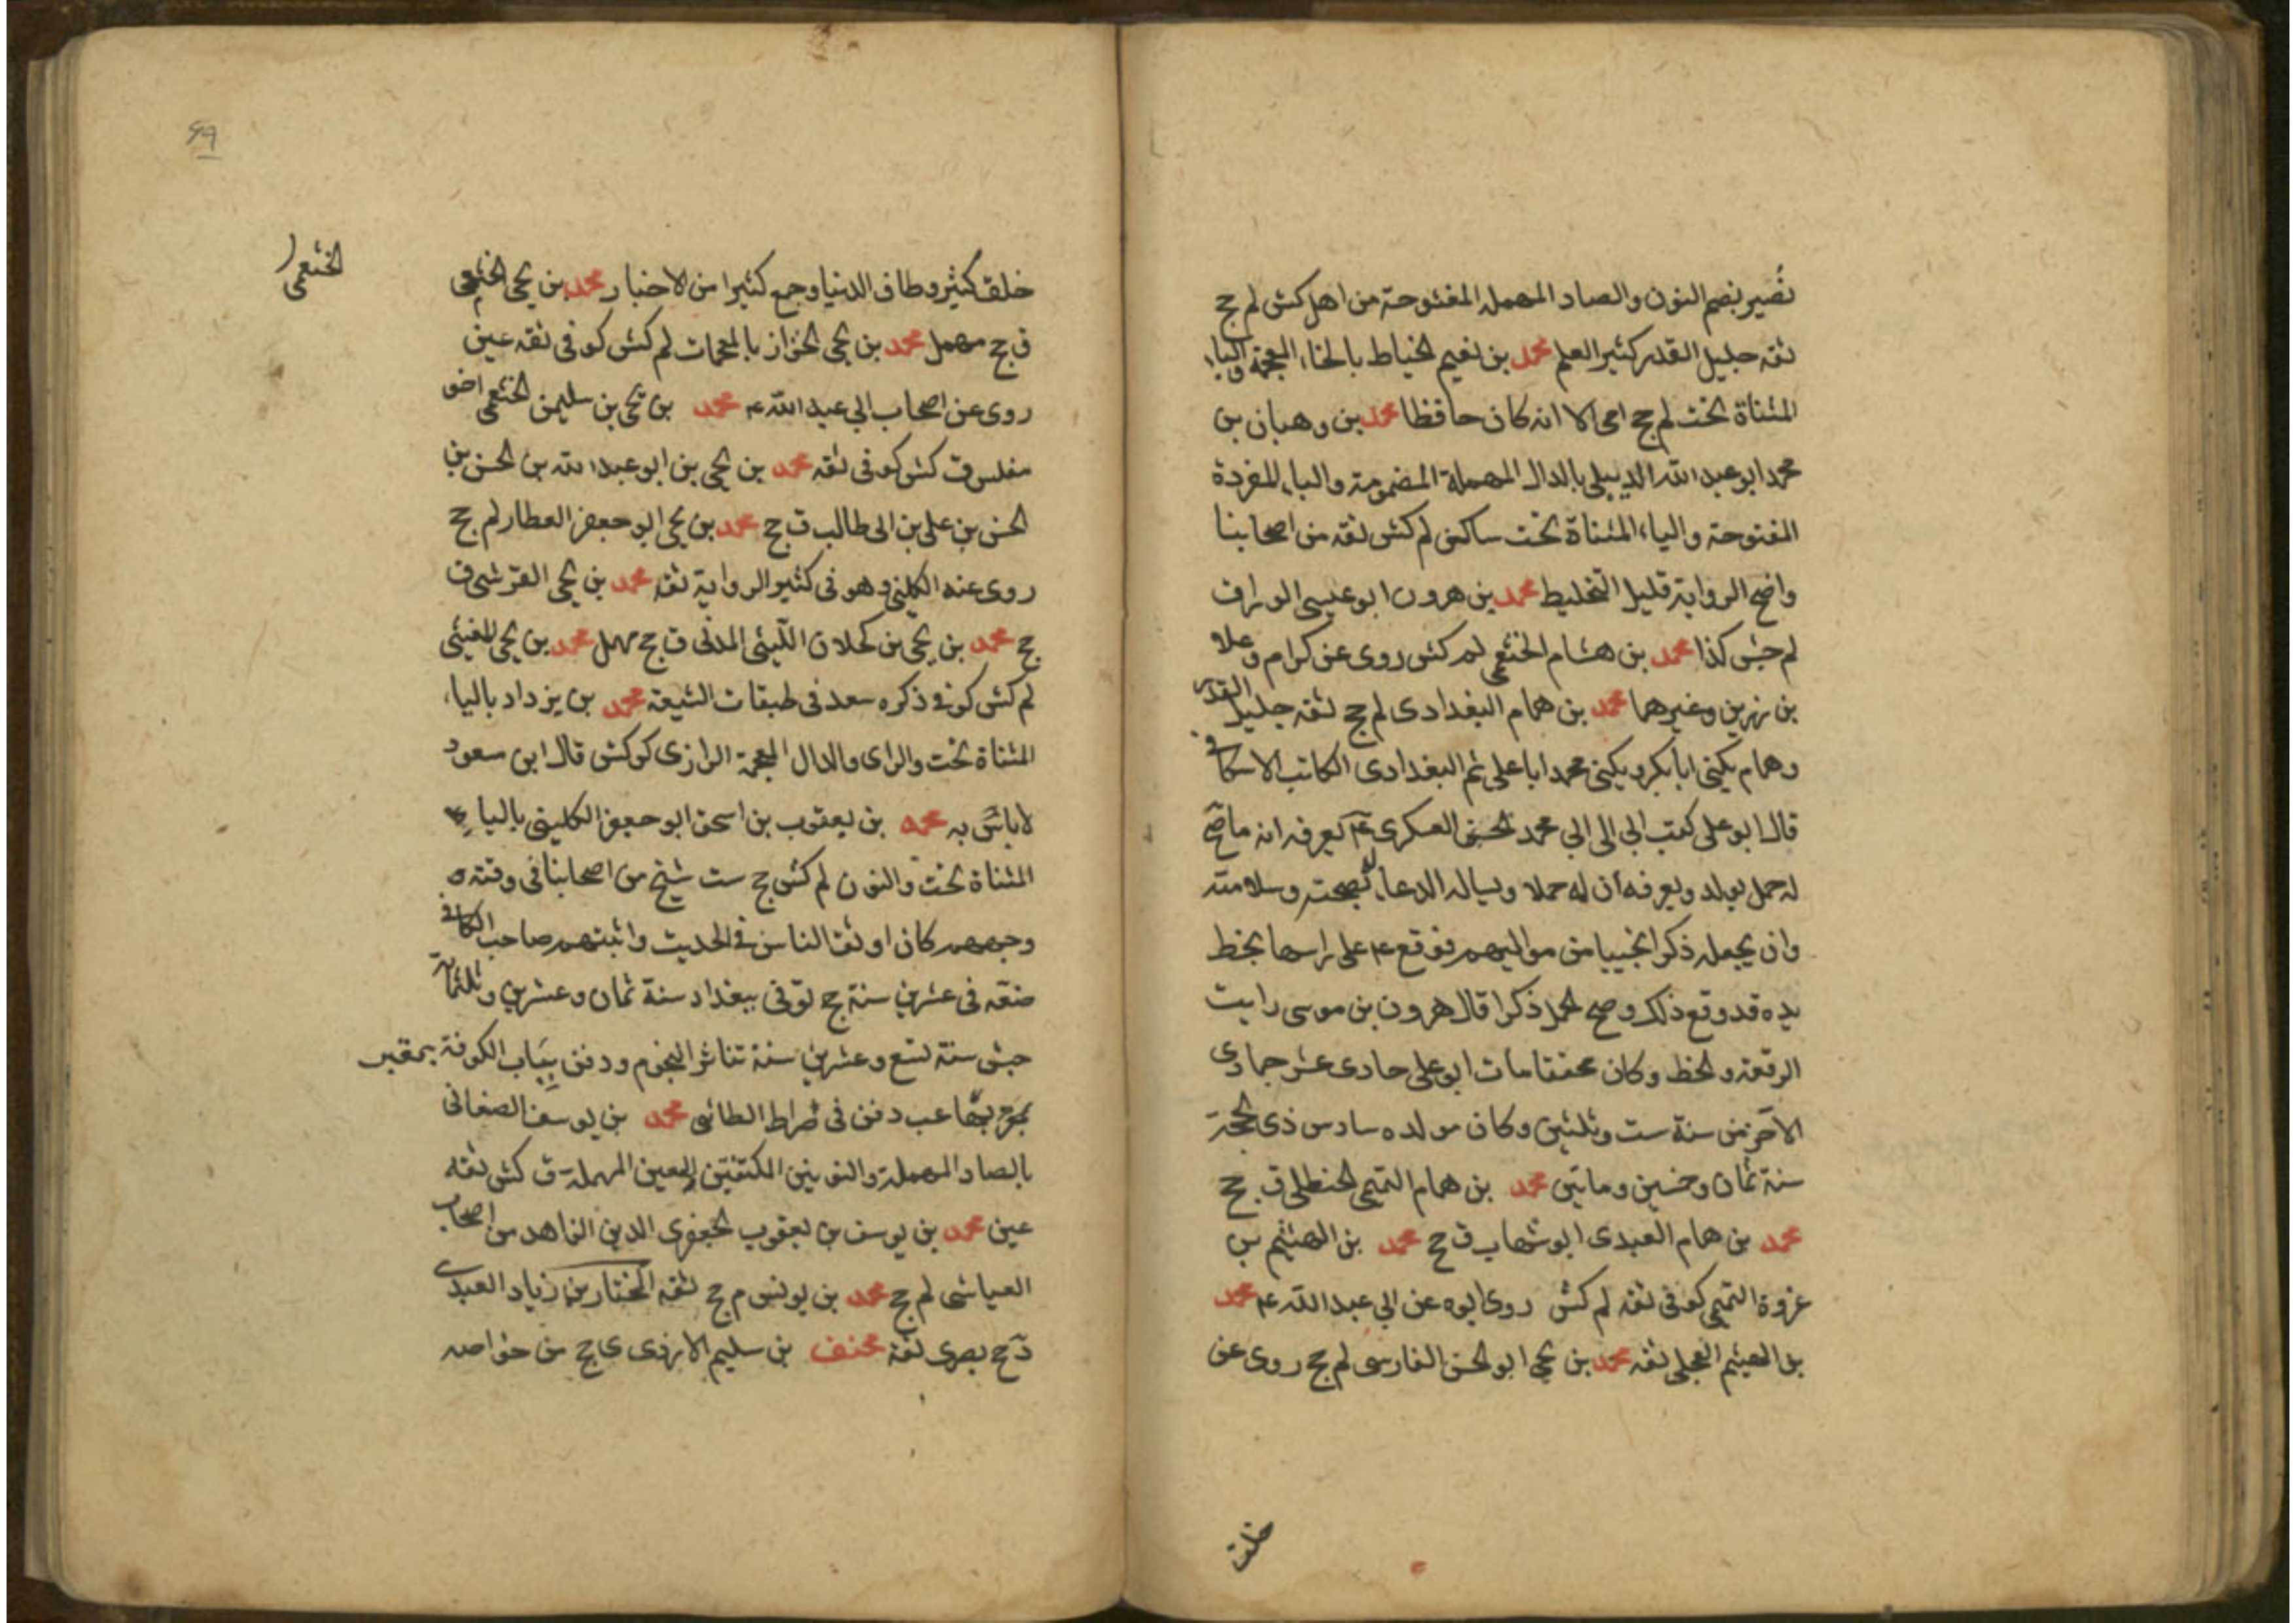 نُصير بضم النون والصاد المهملة المفتوحة من اهل كش لم جح
ثقه جليل القدر كثير العلم محمد بن نعيم الخياط بالخاء المعجمة والياء
المثناة تحت لم جح امى الا انه كان حافظا محمد بن وهبان بن
محمد ابو عبد الله الديبلى بالدال المهملة المضمومة والباء المفردة
المفتوحة والياء المثناة تحت ساكن لم كش ثقه من اصحابنا
واضح الرواية قليل التخليط محمد بن هرون ابو عيسى الوراق
لم جش كذا محمد بن هشام الخثعمى لم كش روى عن كرام وعلا
بن رزين وغيرهما محمد بن همام البغدادى لم جح ثقه جليل القدر
وهمام يكنى ابا بكر ويكنى محمد ابا على ثم البغدادى الكاتب الاسكافى
قال ابو على كتب ابى الى ابي محمد الحسن العسكرى ع يعرفه انه ما صح
له حمل بولد ويعرفه أن له حملا ويساله الدعا بصحته وسلامته
وان يجعله ذكرا نجيبا من مواليهم فوقع ع على راسها بخط
يده قد وقع ذلك وصح الحمل ذكرا قال هرون بن موسى رايت
الرقعة والخط وكان محققا مات ابو على حادى عشر جمادى
الآخر من سنة ست وثلثين وكان مولده سادس ذى الحجة
سنة ثمان وخمسين وماتين محمد بن همام التميمى الحنظلى ق جح
محمد بن همام العبدى ابو شهاب ق جح محمد بن الهيثم بن
عزوة التميمى كوفى ثقه لم كش روى ابوه عن ابي عبد الله ع محمد
بن الهيثم العجلى ثقه محمد بن يحيى ابو الحسن الفارسى لم جح روى عن
خلق
خلق كثير وطاف الدنيا وجمع كثيرا من الاخبار محمد بن يحيى الخثعمى
الخثعمى
ق جح مهمل محمد بن يحيى الخزاز بالمعجمات لم كش كوفى ثقه عين
روى عن اصحاب ابي عبد الله ع محمد بن يحيى بن سليمن الخثعمى اخو
مفلس ق كش كوفى ثقه محمد بن يحيى بن ابو عبد الله بن الحسن بن
الحسن بن على بن ابى طالب ق جح محمد بن يحيى ابو جعفر العطار لم جح
روى عنه الكلينى وهو فى كثير الرواية ثقه محمد بن يحيى القرشى ق
جح محمد بن يحيى بن كحلان اللّيثى المدنى ق جح مهمل محمد بن يحيى المغيثى
لم كش كوفى ذكره سعد فى طبقات الشيعة محمد بن يزداد بالياء
المثناة تحت والزاى والدال المعجمة الرازى كر كش قال ابن مسعود
لا باس به محمد بن يعقوب بن اسحق ابو جعفر الكلينى بالياء
المثناة تحت والنون لم كش جح ست شيخ من اصحابنا فى وقته
وجههم كان اوثق الناس فى الحديث واثبتهم صاحب الكافى
صنفه فى عشرين سنة جح توفى ببغداد سنة ثمان وعشرين وثلثمائة
جش سنة تسع وعشرين سنة تناثر النجوم ودفن بباب الكوفة بمقبر
دفن فى صراط الطائى محمد بن يوسف الصنعانى
بالصاد المهملة والنونين المكتنفتين العين المهملة ق كش ثقه
عين محمد بن يوسف بن يعقوب الجعفرى الدين الزاهد من اصحاب
العياشى لم جح محمد بن يونس م جح ثقه المختار بن زياد العبدى
د جح بصرى ثقة مخنف بن سليم الازدى ى جح من خواصه